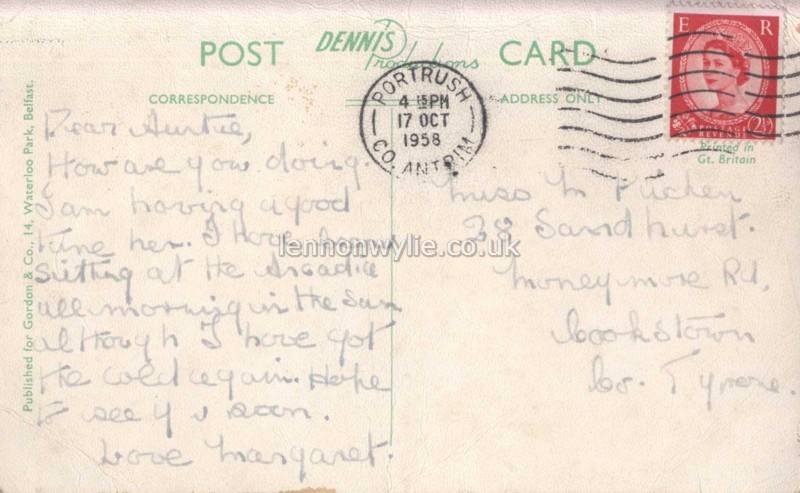 POST DENNIS Productions CARD
CORRESPONDENCE
ADDRESS ONLY
PORTRUSH
4 15 PM
17 OCT
1958
CO. ANTRIM
E R
2½
POSTAGE
REVENUE
Printed in
Gt. Britain
Published for Gordon & Co., 14, Waterloo Park, Belfast.
Dear Auntie,
How are you doing.
I am having a good
time her. I have been
sitting at the Arcadia
all morning in the sun
although I have got
the cold again. Hope
to see you soon.
Love Margaret.
Miss M
38 Sandhurst.
Moneymore Rd,
Cookstown
Co. Tyrone.
lennonwylie.co.uk